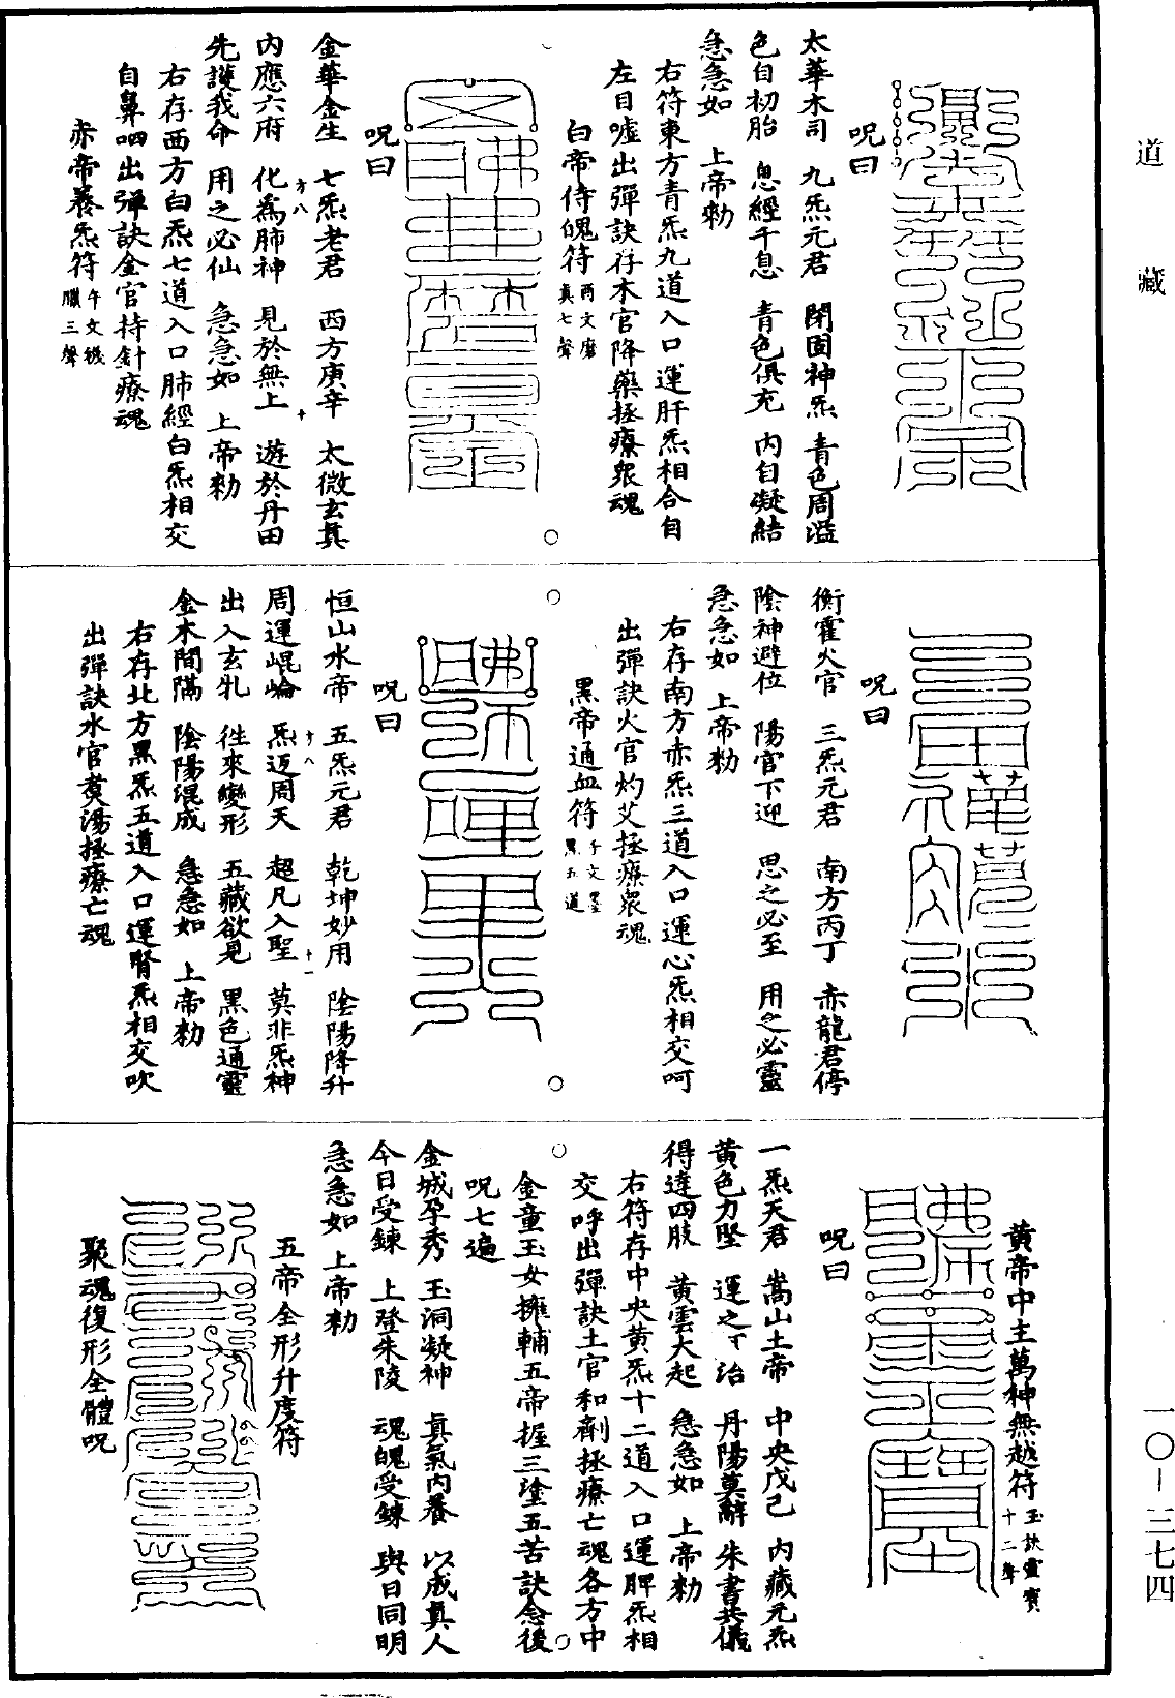 道藏
呪曰
太華木司　九炁元君　閉固神炁　青色周溢
色自初胎　息經千息　青色俱充　内自凝結
急急如　上帝勑
右符東方青炁九道入口運肝炁相合自
左目噓出彈訣存木官降藥拯療眾魂
白帝侍魄符
呪曰
金華金生　七炁老君　西方庚辛　太微玄真
内應六府　化為肺神　見於無上　遊於丹田
先護我命　用之必仙　急急如　上帝勑
右存西方白炁七道入口肺經白炁相交
自鼻呬出彈訣金官持針療魂
赤帝養炁符
呪曰
衡霍火官　三炁元君　南方丙丁　赤龍君停
陰神避位　陽官下迎　思之必至　用之必靈
急急如　上帝勑
右存南方赤炁三道入口運心炁相交呵
出彈訣火官灼艾拯療眾魂
黑帝通血符
呪曰
恒山水帝　五炁元君　乾坤妙用　陰陽降升
周運崐崘　炁迈周天　超凡入聖　莫非炁神
出入玄牝　徃來變形　五藏欲見　黑色通靈
金木間隔　陰陽混成　急急如　上帝勑
右存北方黑炁五道入口運腎炁相交吹
出彈訣水官煑湯拯療亡魂
黄帝中主萬神無越符
呪曰
一炁天君　嵩山土帝　中央戊己　内藏元炁
黄色力堅　運之下治　丹陽莫辭　朱書共儀
得達四肢　黄雲大起　急急如　上帝勑
右符存中央黄炁十二道入口運脾炁相
交呼出彈訣土官和劑拯療亡魂各方中
金童玉女擁輔五帝握三塗五苦訣念後
呪七遍
金城孕秀　玉洞凝神　真氣内養　以成真人
今日受鍊　上登朱陵　魂魄受鍊　與日同明
急急如　上帝勑
五帝全形升度符
聚魂復形全體呪
一〇—三七四